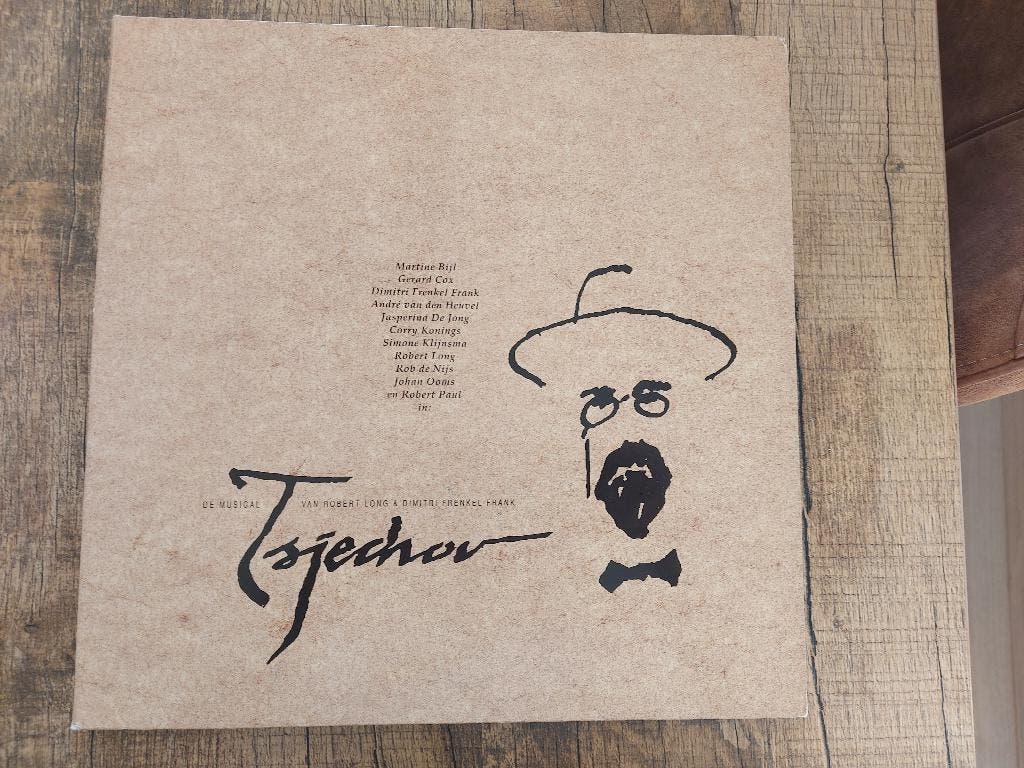 Martine Bijl
Gerard Cox
Dimitri Frenkel Frank
André van den Heuvel
Jasperina De Jong
Corry Konings
Simone Klijnsma
Robert Long
Rob de Nijs
Johan Ooms
en Robert Paul
in:
DE MUSICAL VAN ROBERT LONG & DIMITRI FRENKEL FRANK
Tsjechov